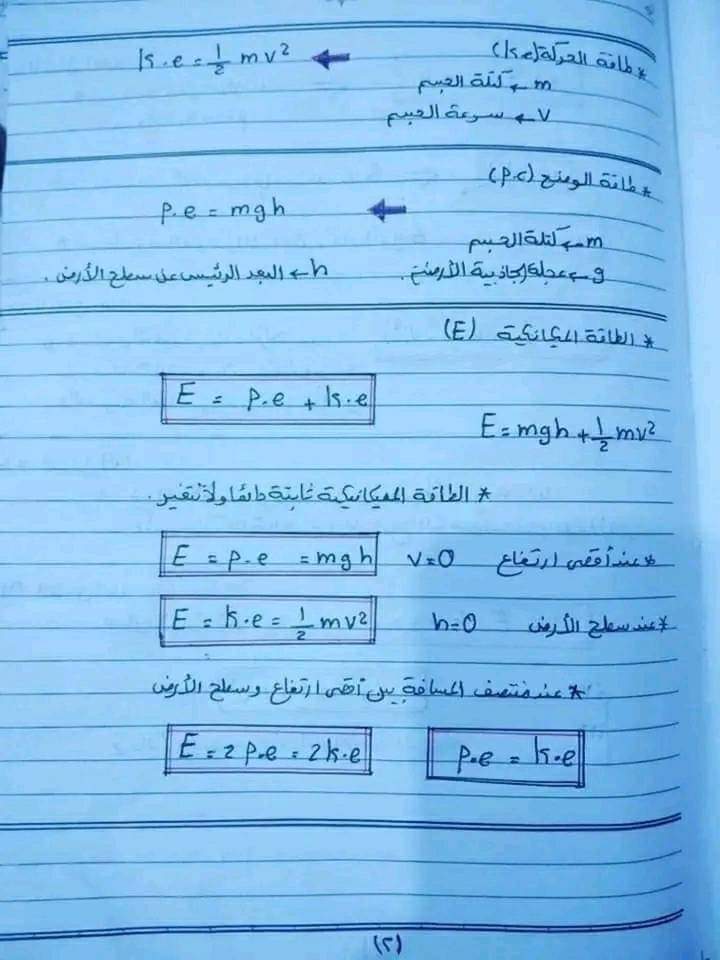 * طاقة الحركة (k.e) ← k.e = 1/2 mv²
m ← كتلة الجسم
v ← سرعة الجسم
* طاقة الوضع (p.e)
← p.e = mgh
m ← كتلة الجسم
g ← عجلة الجاذبية الأرضية. h ← البعد الرئيسى عن سطح الأرض.
* الطاقة الميكانيكية (E)
E = p.e + k.e
E = mgh + 1/2 mv²
* الطاقة الميكانيكية ثابتة دائما ولا تتغير.
* عند أقصى ارتفاع v=0 E = p.e = mgh
* عند سطح الأرض h=0 E = k.e = 1/2 mv²
* عند منتصف المسافة بين أقصى ارتفاع وسطح الأرض
p.e = k.e E = 2 p.e = 2 k.e
(٢)